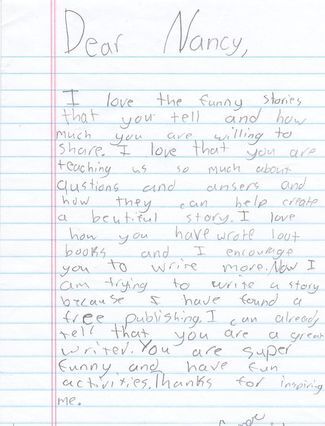 Dear Nancy,
I love the funny stories
that you tell and how
much you are willing to
share. I love that you are
teaching us so much about
qustions and ansers and
how they can help create
a beutiful story. I love
how you have wrote lout
books and I encourage
you to write more. Now I
am trying to write a story
because I have found a
free publishing. I can already
tell that you are a great
writer. You are super
funny and have fun
activities. Thanks for inspiring
me.